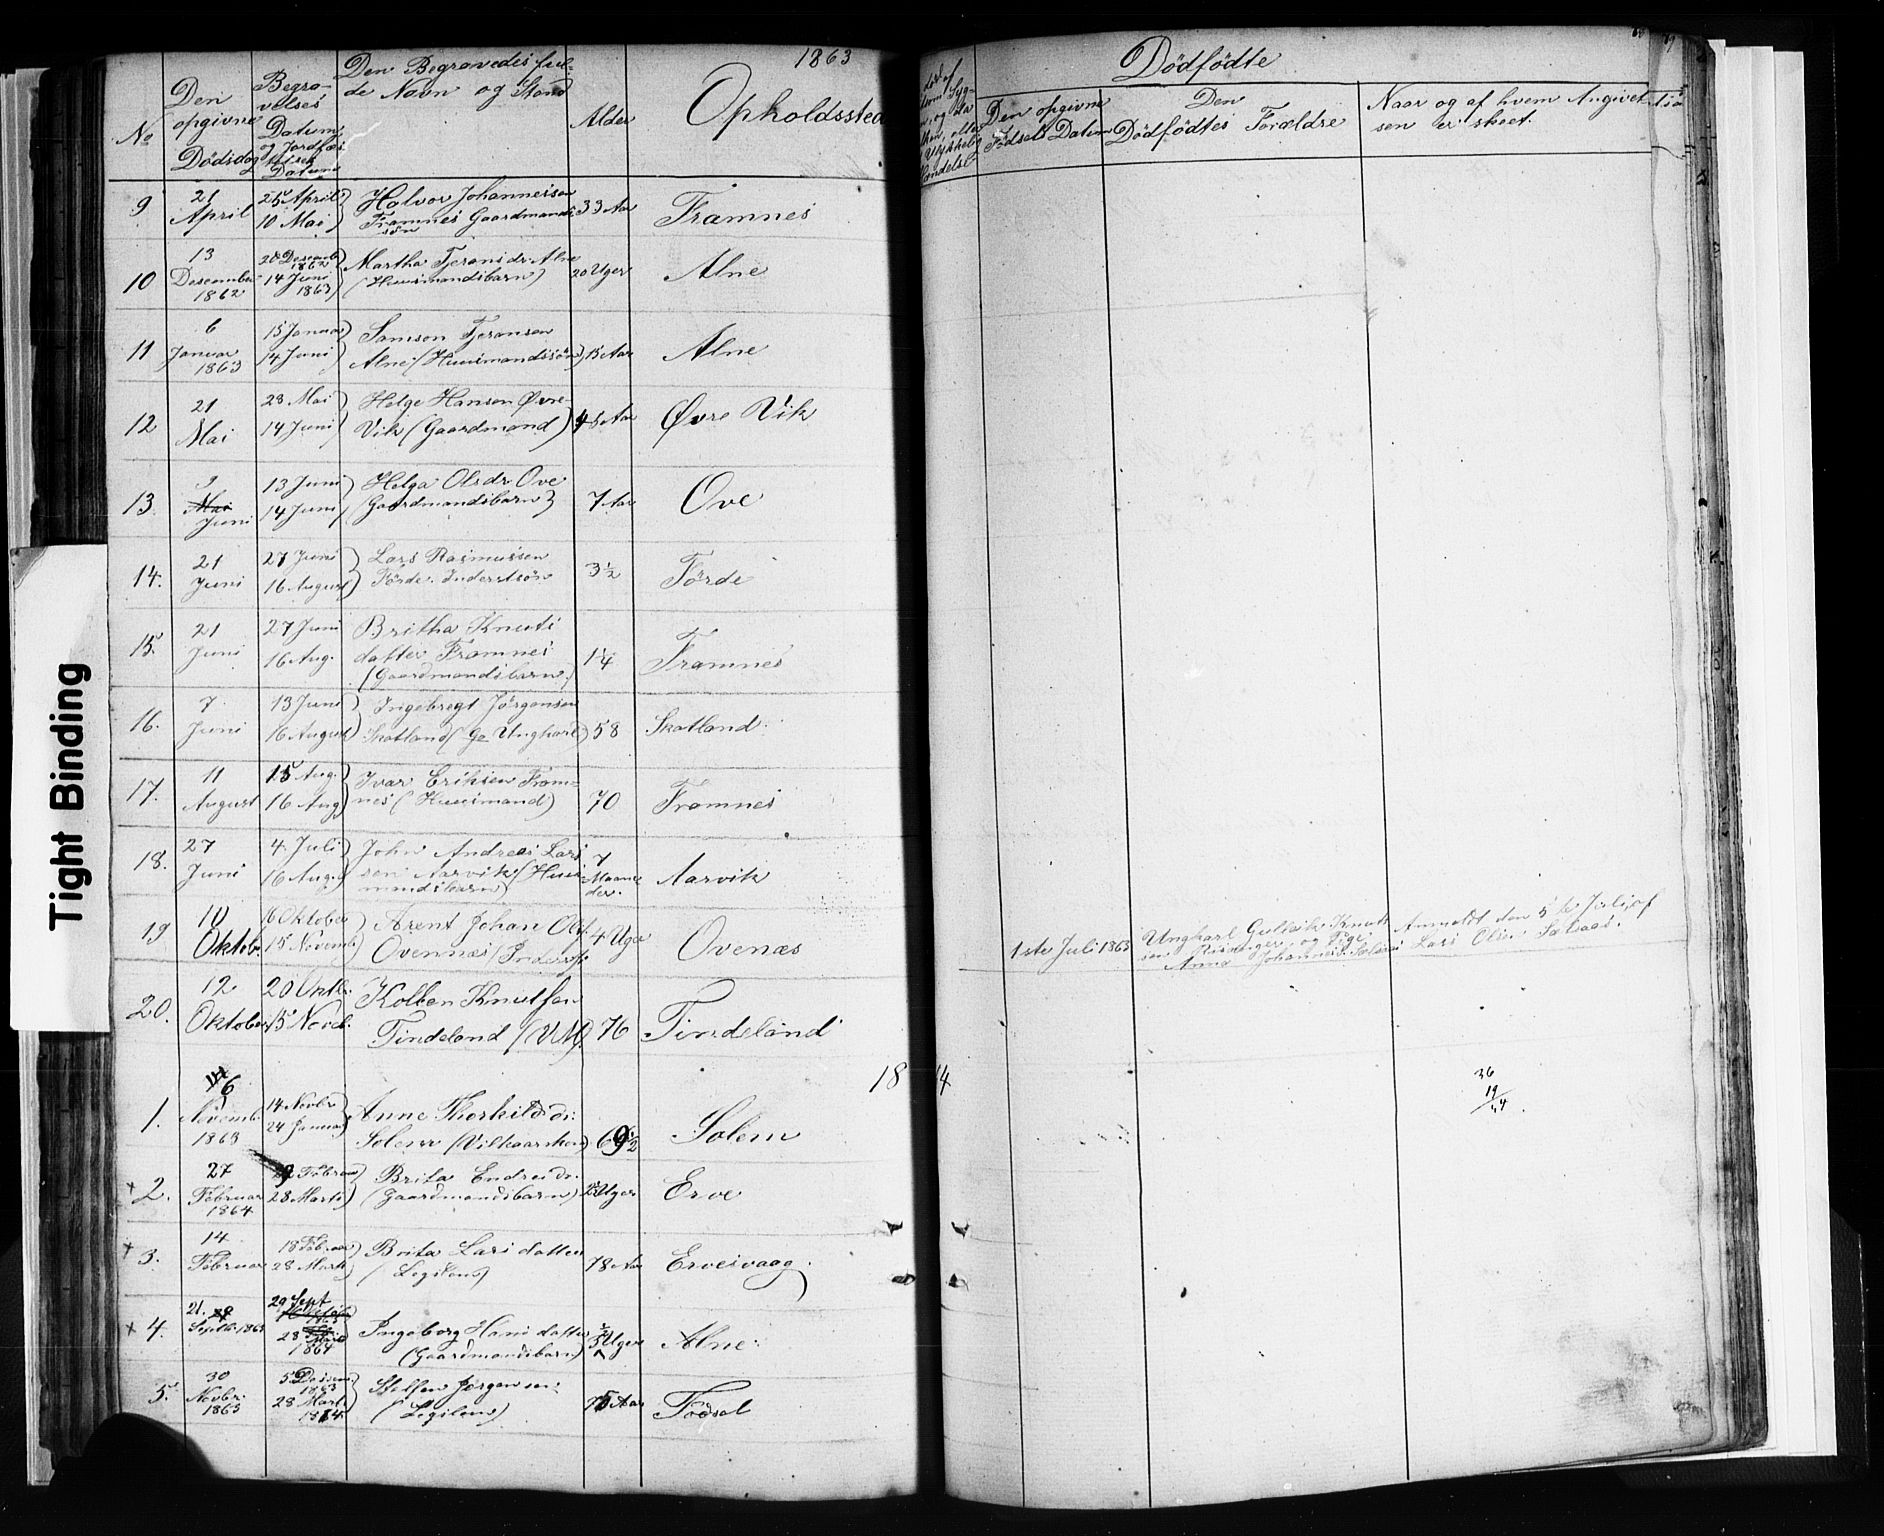 1863
No
Den opgivne Dødsdag
Begravelses Datum, og Jordfæstelses Datum
Den Begravedes fulde Navn og Stand
Alder
Opholdssted
9 21 April 25 April 10 Mai Halvor Johannessen Framnes Gaardmandssøn 33 Aar Framnes
10 13 Desember 1862 20 Desemb. 1862 14 Juni 1863 Martha Tjeransdr Alne (Huusmandsbarn) 20 Uger Alne
11 6 Januar 1863 15 Januar 14 Juni Samson Tjeransen Alne (Huusmandssøn) 15 Aar Alne
12 21 Mai 28 Mai 14 Juni Helge Hansen Øvre-Vik (Gaardmand) 45 Aar Øvre Vik
13. 9 Mai Juni 13 Juni 14 Juni Helga Olsdr Ove (Gaardmandsbarn) 7 Aar Ove
14. 21 Juni 27 Juni 16 August Lars Rasmussen Førde. Inderstsøn 3 1/2 Førde
15. 21 Juni 27 Juni 16 Aug. Britha Knuts datter Framnes (Gaardmandsbarn) 1 1/4 Framnes
16. 7 Juni 13 Juni 16 August Ingebregt Jørgensen Skatland (Ungkarl) 58 Skatland.
17. 11 August 15 Aug. 16 Aug. Ivar Eriksen Framnes (Huusmand) 70 Framnes
18. 27 Juni 4 Juli 16 Aug. John Andreas Larssen Aarvik (Huusmandsbarn) 7 Maaneder. Aarvik
19 10 Oktob. 16 Oktober 15 Novemb. Arent Johan Ols. Ovennæs 4 Uger Ovenæs
20. 12 Oktober 20 Oktbr. 15 Novb. Kolben Knutsen Tindeland 76 Tindeland
18
1. 6 Novemb. 1863 14 Novbr 24 Januar Anne Thorkildsdr: Solem (Vilkaarskone) 69 1/2 Solem
+ 2. 27 Februar 1864 28 Marts Brita Endresdr. (Gaardmandsbarn) Uger Erve
+ 3. 14 Februar 18 Februar 28 Marts Brita Larsdatter (Legdslem) 78 Aar Ervesvaag.
+ 4. 21. Septbr. 1863 29 Sept 28 1864 Ingeborg Hansdatter (Gaardmandsbarn) Uger Alne.
5. 30 Novbr. 1863 5 Desem. 1863 28 Marts 1864. Steffen Jørgensen: (Legdslem) 75 Aar
Dødfødte
Den opgivne Fødsels Datum
Den Dødfødtes Forældre
Naar og af hvem Angivelsen er skeet.
1ste Juli 1863 Ungkarl Gullik Knutsen og Pige Anna Johannesd. Anmeldt den 5te Juli, af Lars Olsen
64
36
19
Tight Binding